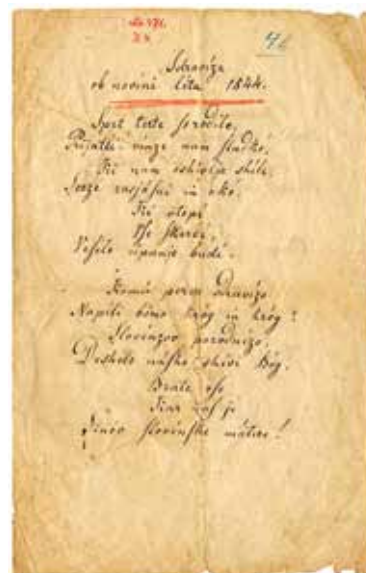 46
Sdravíza
ob novini léta 1844.
Spet terte ſo rodile,
Prijatli vinze nam ſladkó,
Ki nam oshivlja shile,
Serze rasjáſni in okó.
Ki vtopi
Vſe ſkerbi,
Veſelo upanje budi.
Komú pervo Sdravizo
Napili bómo krog in krog?
Slovénzov porodnizo,
Deshelo náſho shivi Bóg.
Brate vſe
Kar naſ je
Sinov ſlovénſhe mátere!